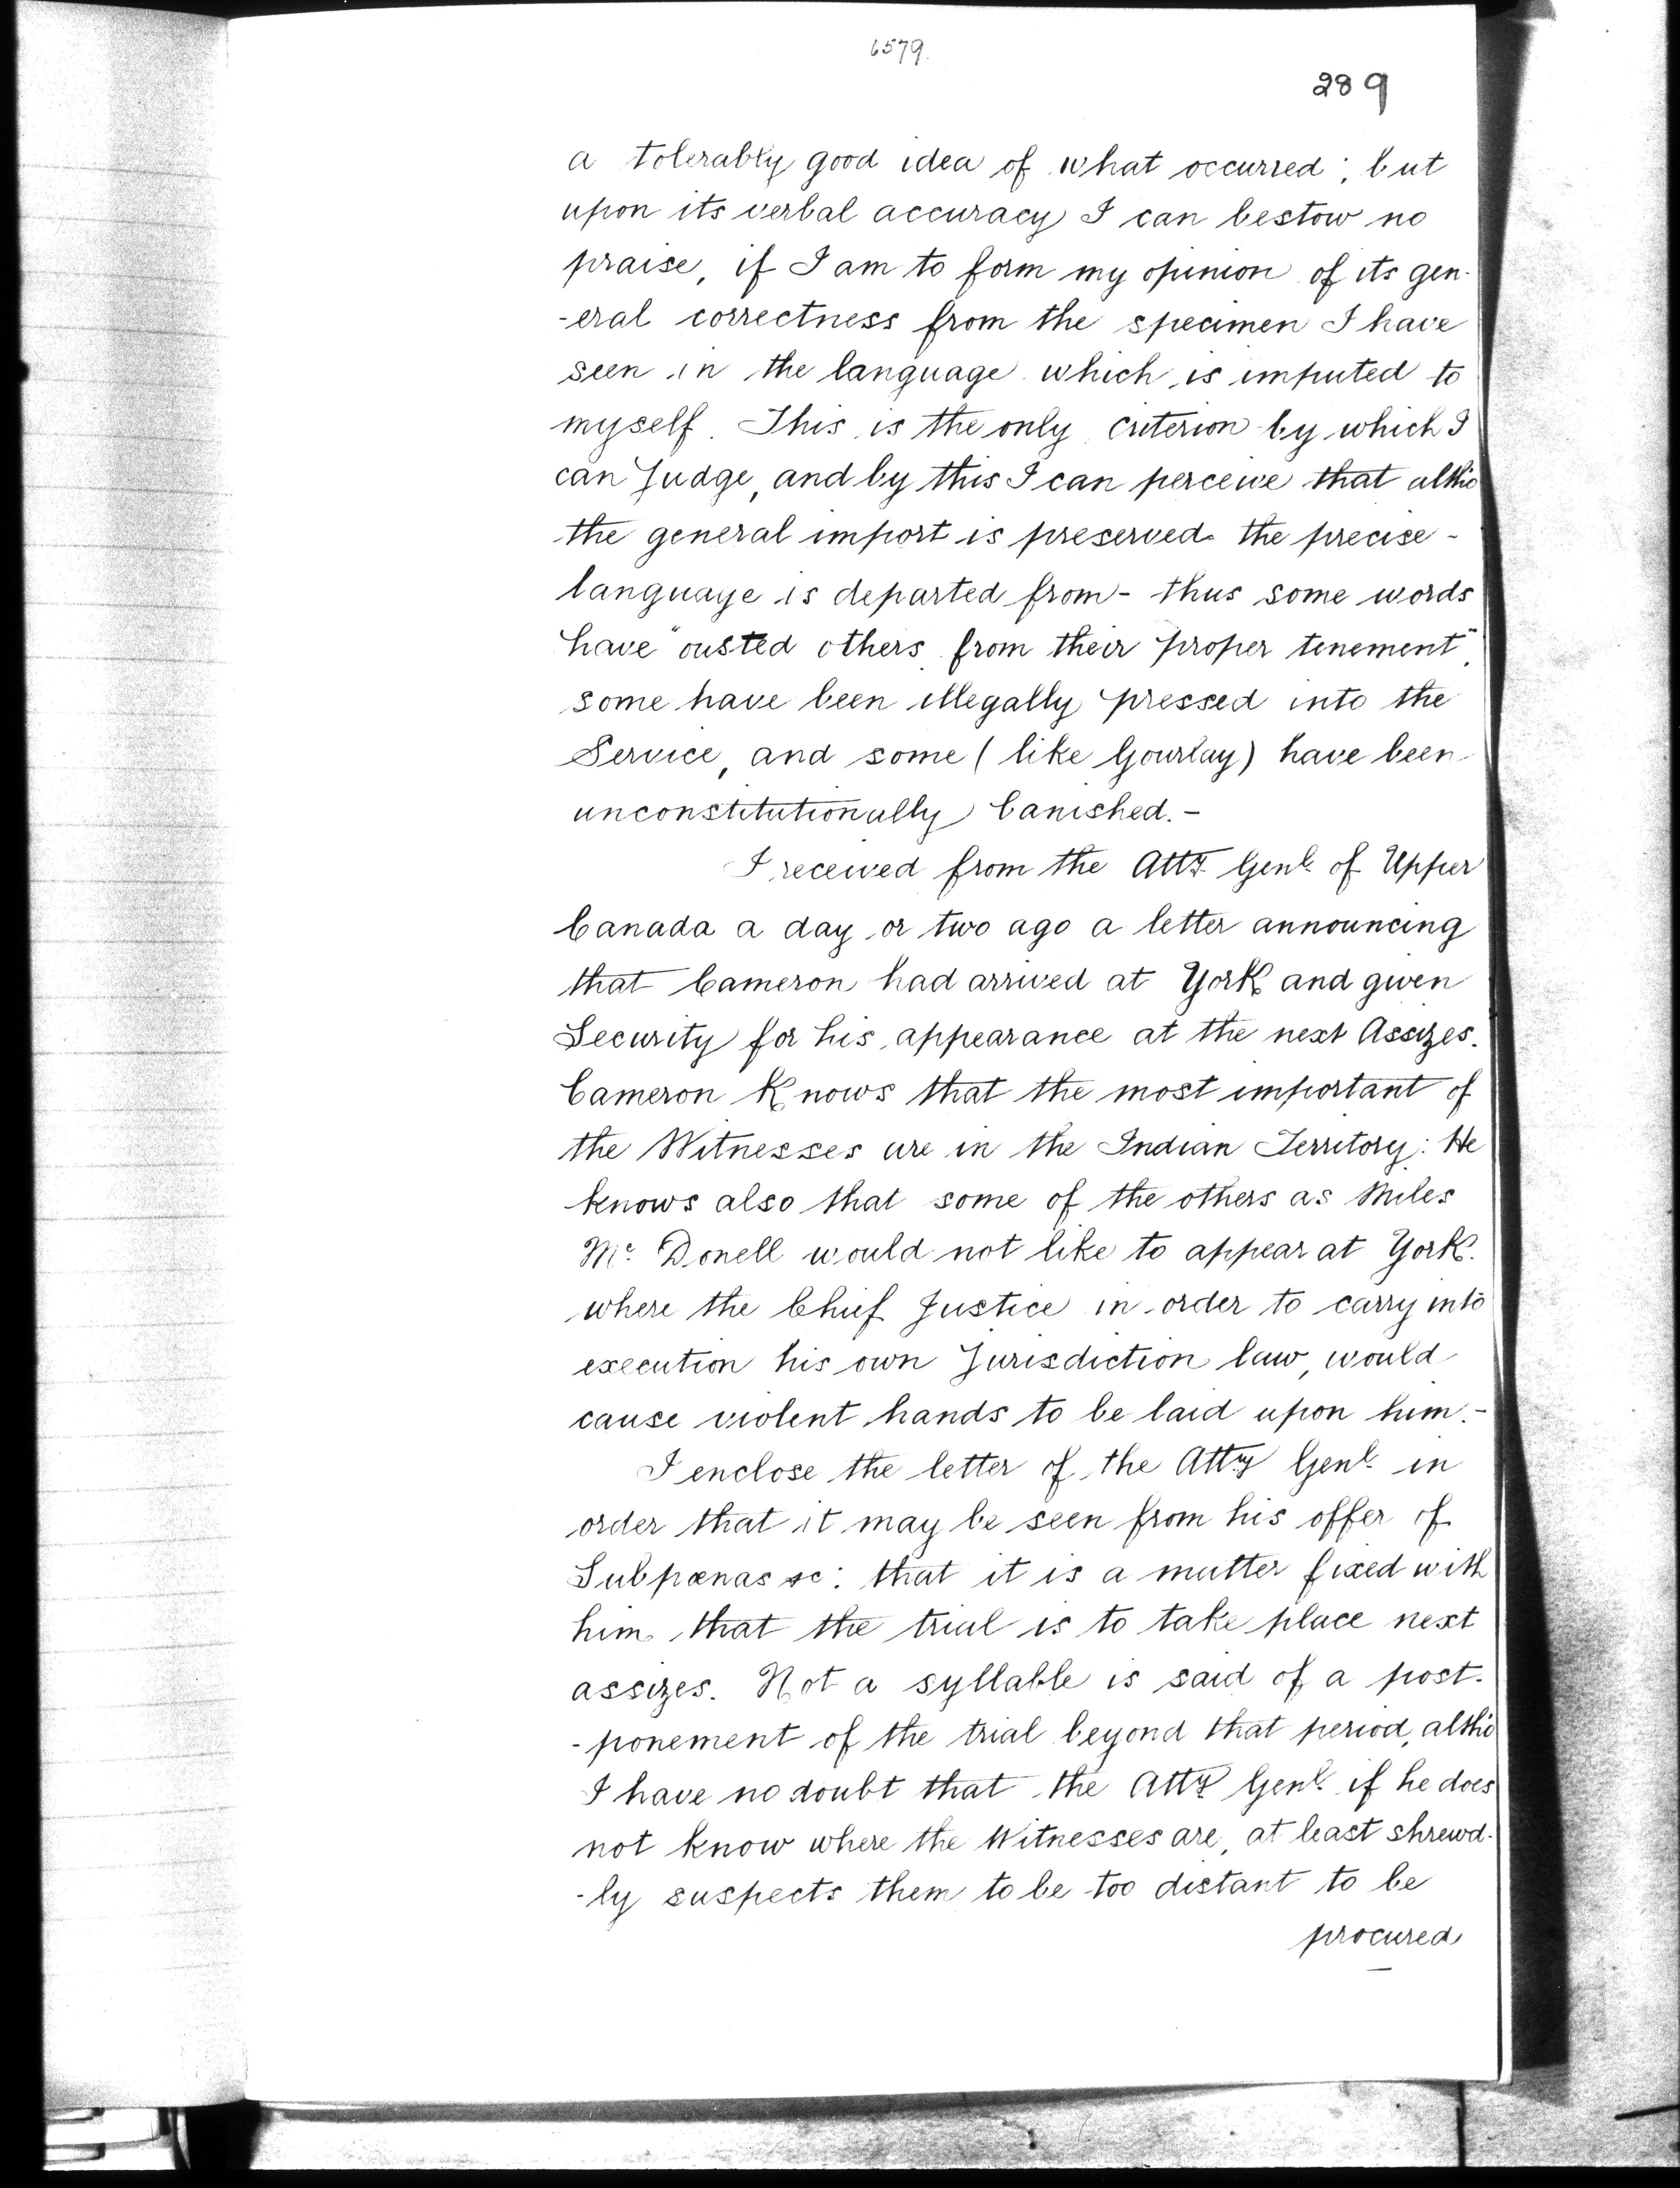 6579.
289
a tolerably good idea of what occurred; but
upon its verbal accuracy I can bestow no
praise, if I am to form my opinion of its gen-
-eral correctness from the specimen I have
seen in the language which is imputed to
myself. This is the only criterion by which I
can Judge, and by this I can perceive that altho
the general import is preserved the precise -
language is departed from - thus some words
have "ousted others from their proper tenement",
some have been illegally pressed into the
Service, and some (like Gourlay) have been
unconstitutionally banished. -
I received from the Atty Genl of Upper
Canada a day or two ago a letter announcing
that Cameron had arrived at York and given
Security for his appearance at the next Assizes.
Cameron Knows that the most important of
the Witnesses are in the Indian Territory: He
knows also that some of the others as Miles
Mc Donell would not like to appear at York.
where the Chief Justice in order to carry into
execution his own Jurisdiction law, would
cause violent hands to be laid upon him. -
I enclose the letter of the Atty Genl in
order that it may be seen from his offer of
Subpœnas &c: that it is a matter fixed with
him that the trial is to take place next
assizes. Not a syllable is said of a post-
-ponement of the trial beyond that period, altho
I have no doubt that the Atty Genl if he does
not know where the Witnesses are, at least shrewd-
-ly suspects them to be too distant to be
procured